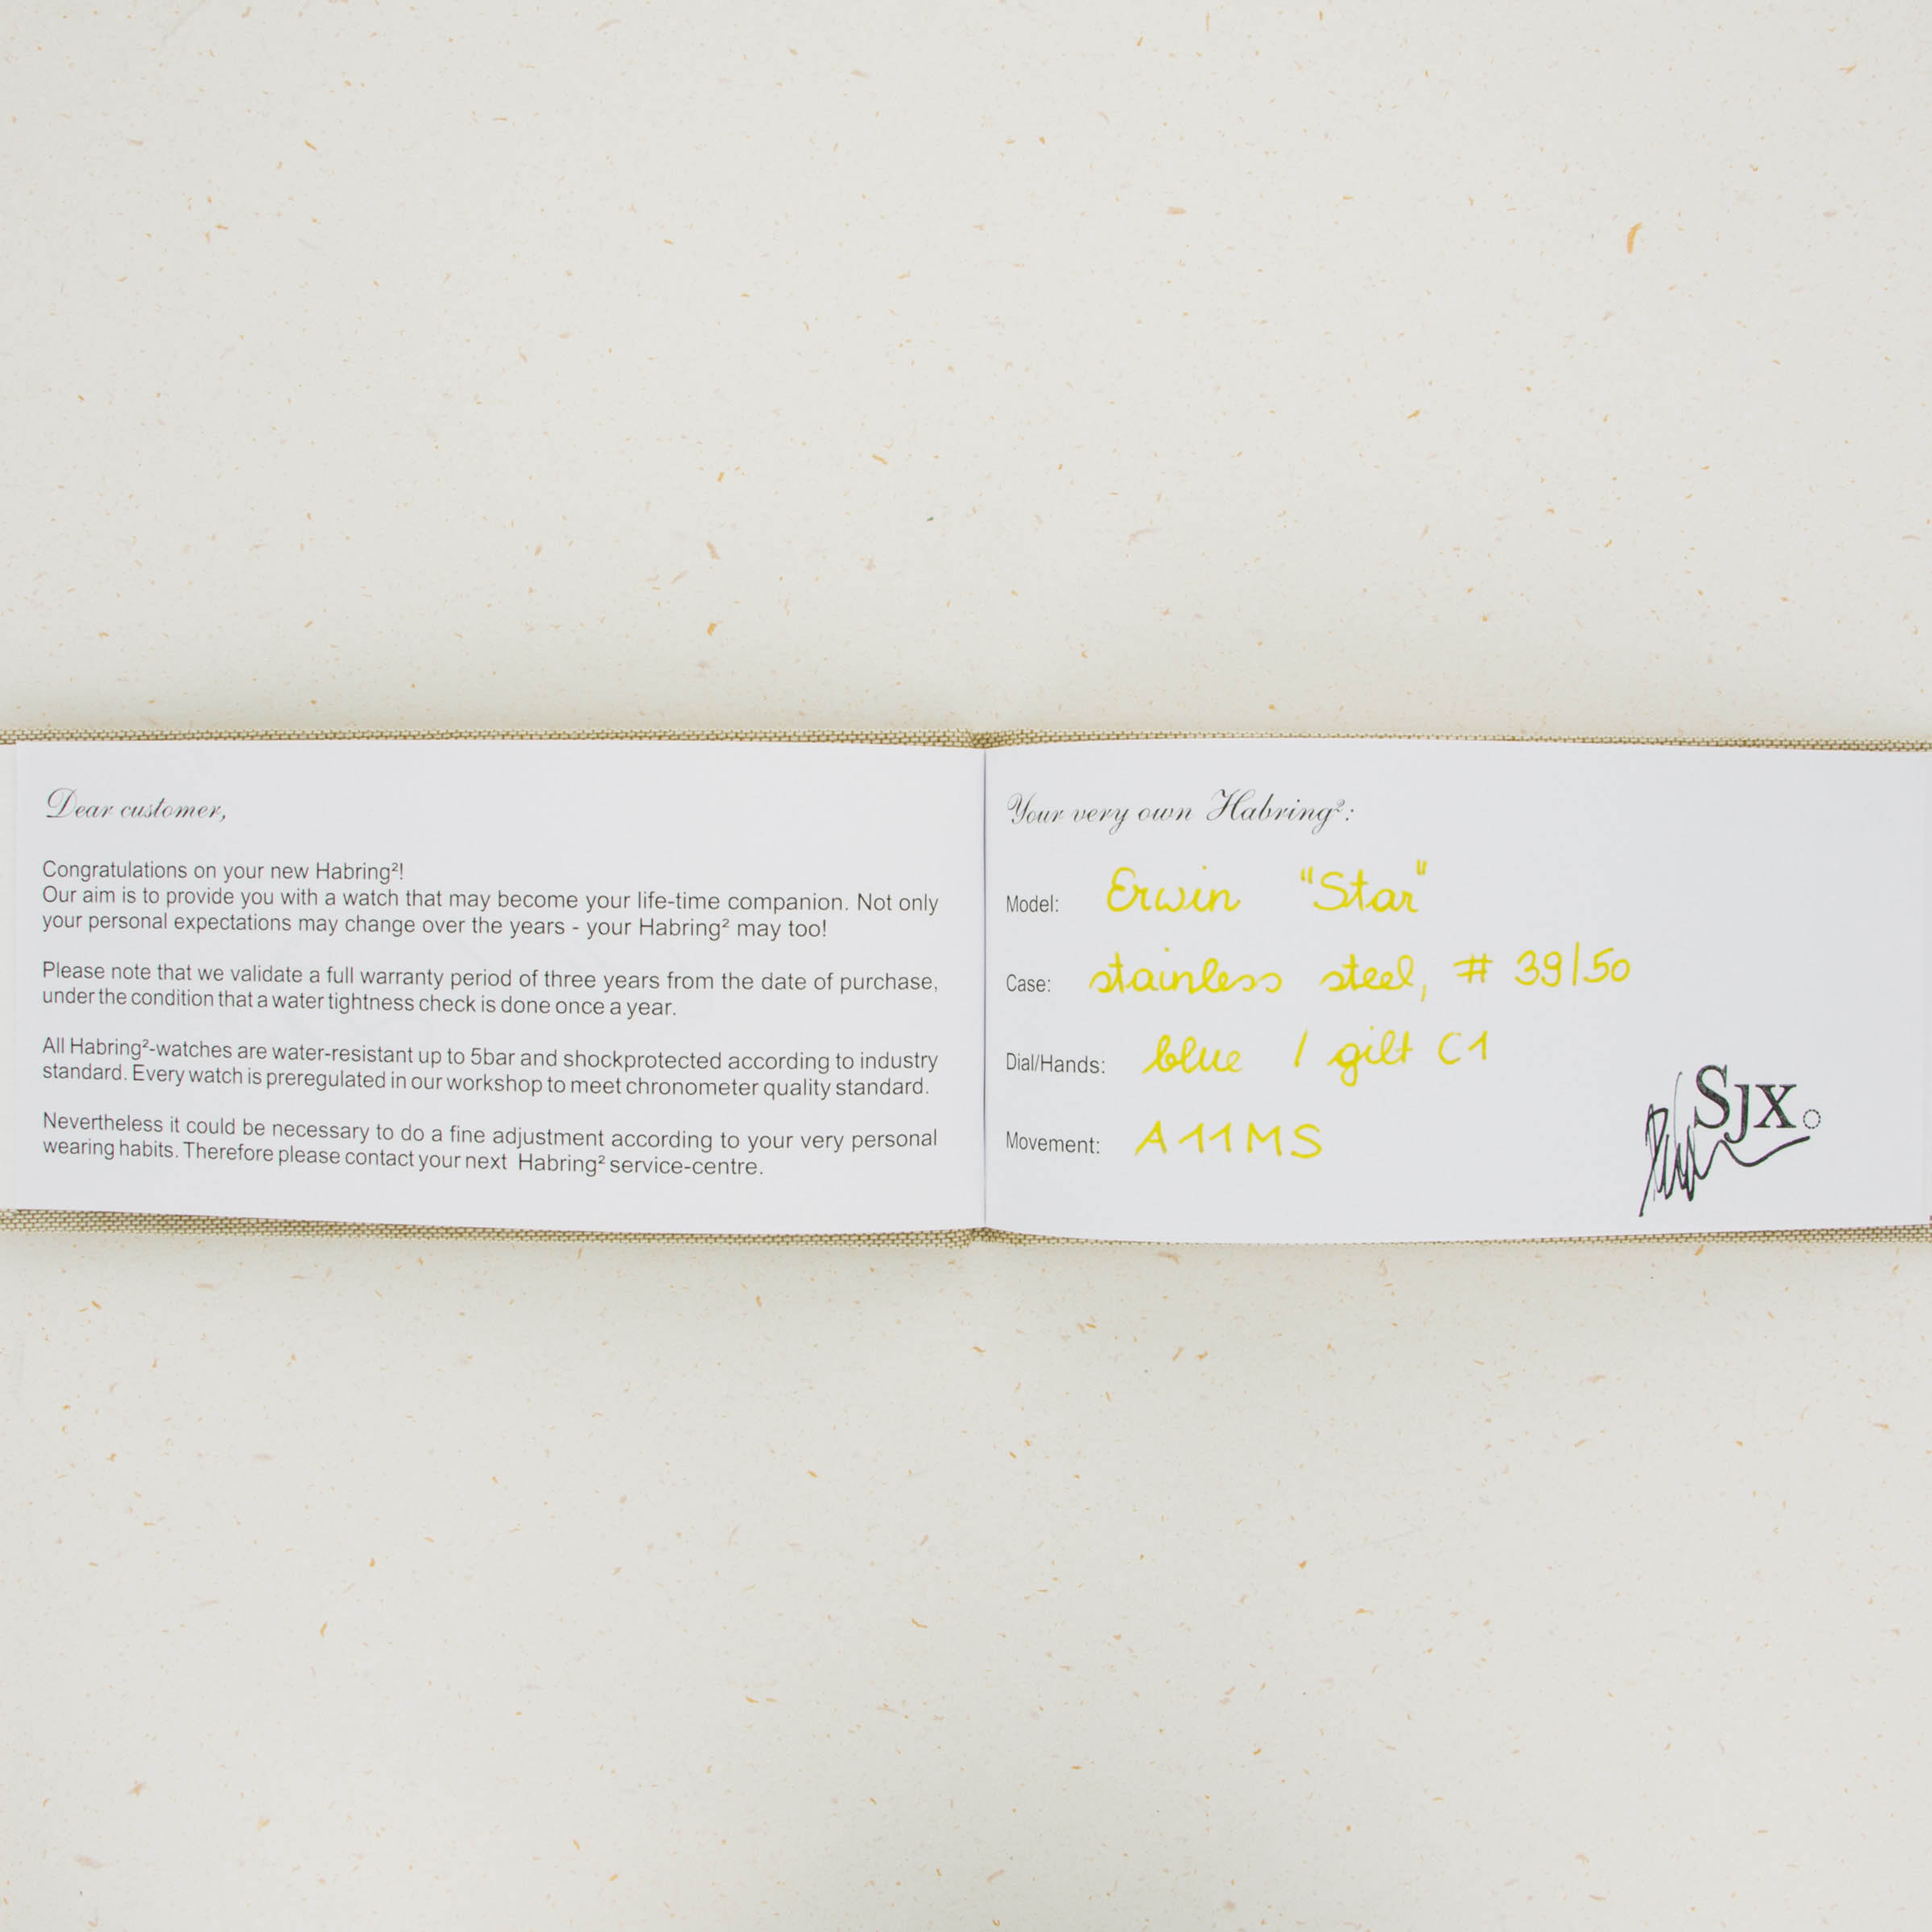 Dear customer,
Congratulations on your new Habring²!
Our aim is to provide you with a watch that may become your life-time companion. Not only
your personal expectations may change over the years - your Habring² may too!
Please note that we validate a full warranty period of three years from the date of purchase,
under the condition that a water tightness check is done once a year.
All Habring²-watches are water-resistant up to 5bar and shockprotected according to industry
standard. Every watch is preregulated in our workshop to meet chronometer quality standard.
Nevertheless it could be necessary to do a fine adjustment according to your very personal
wearing habits. Therefore please contact your next Habring² service-centre.
Your very own Habring²:
Model: Erwin "Star"
Case: stainless steel, # 39/50
Dial/Hands: blue / gilt C1
Movement: A11MS
SJX